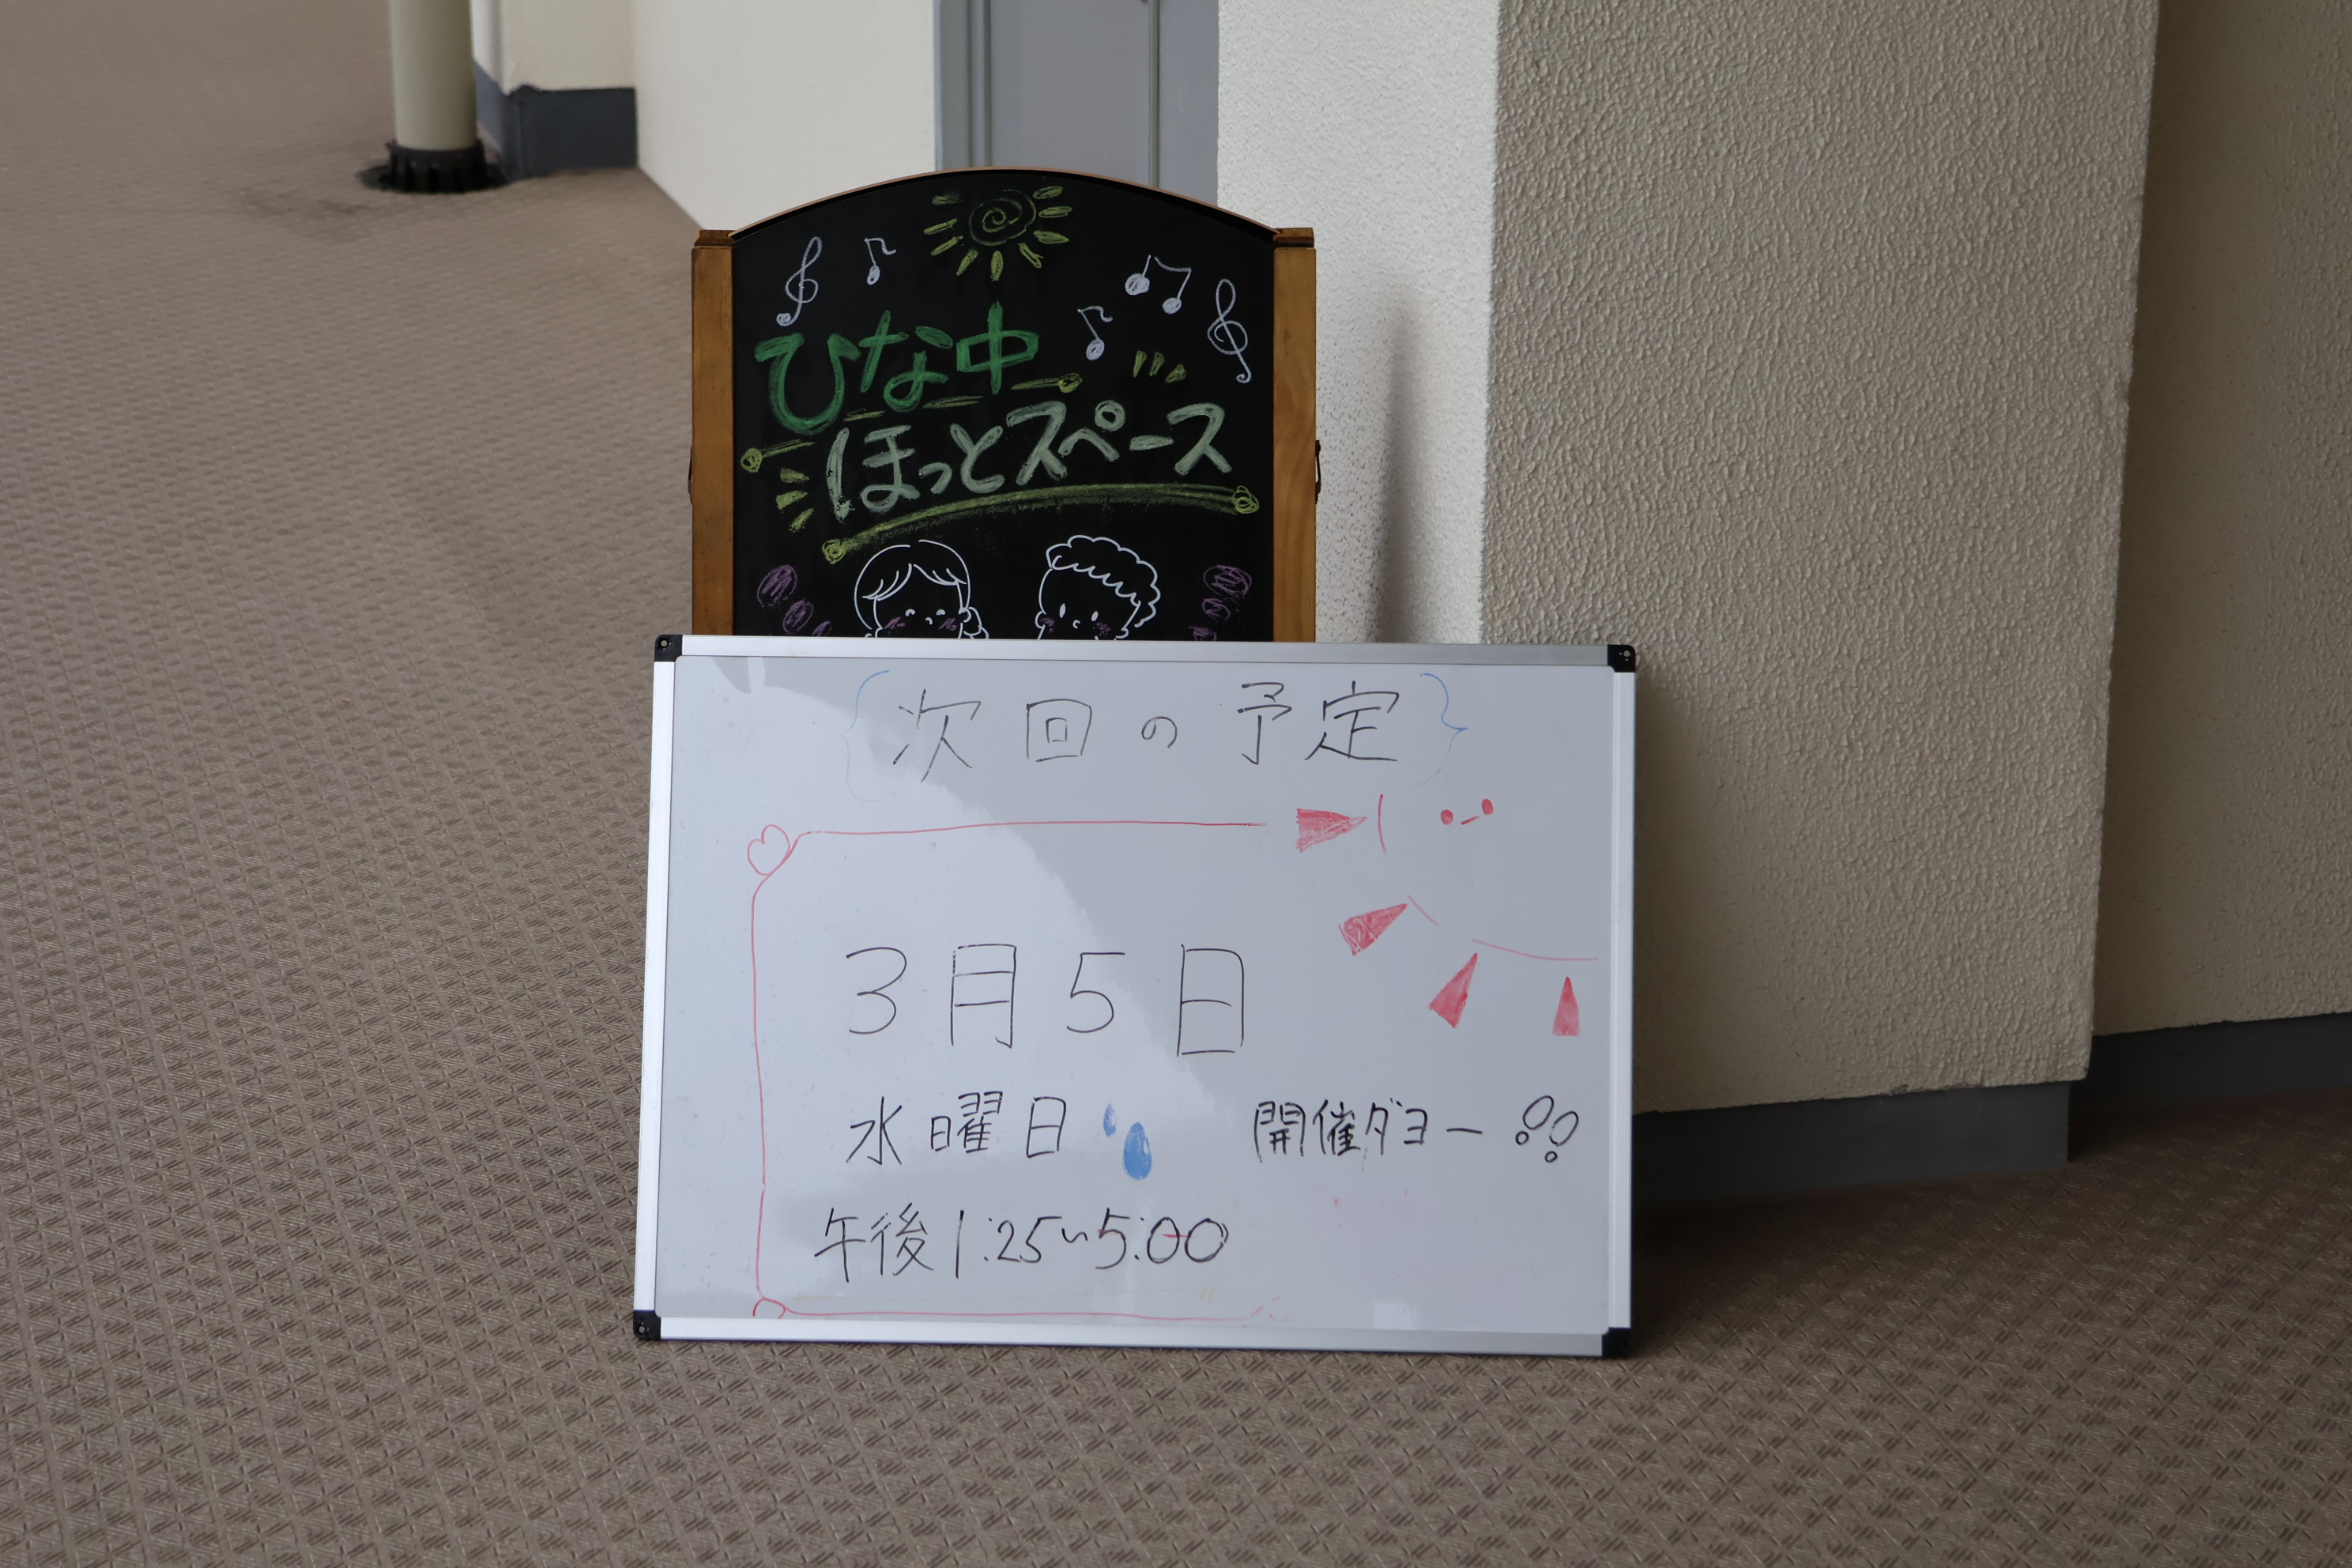 ひな中
ほっとスペース
次回の予定
3月5日
水曜日
開催ダヨー
午後1:25~5:00